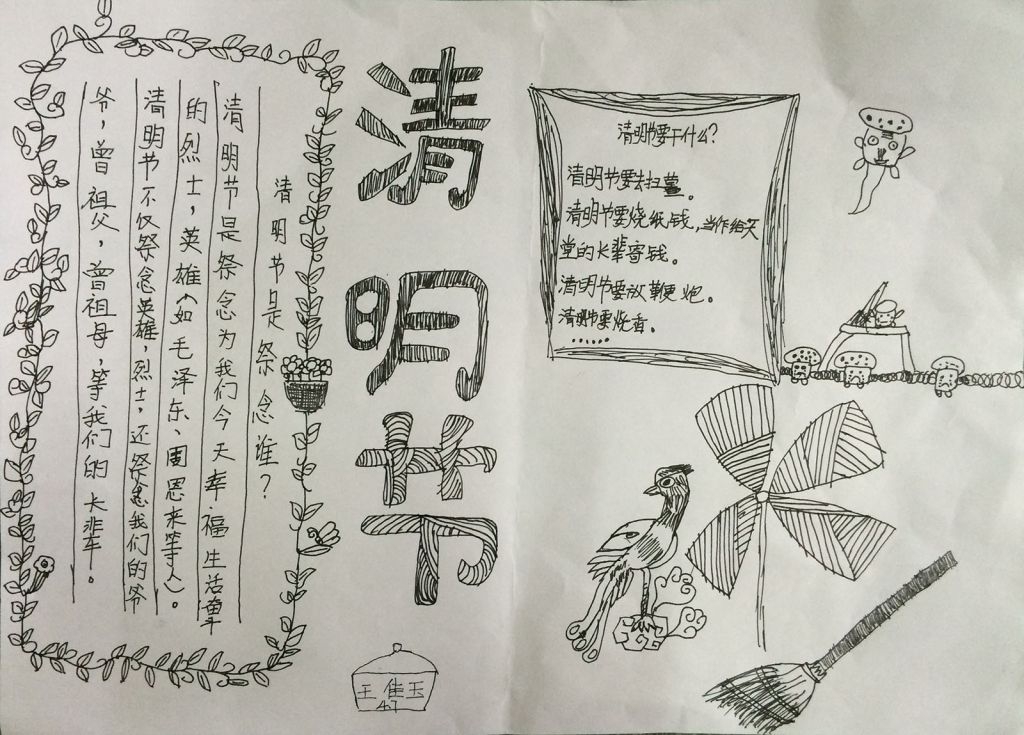 清明节
清明节是祭念谁?
清明节是祭念为我们今天幸福生活牵
的烈士,英雄(如毛泽东、周恩来等人)。
清明节不仅祭念英雄,烈士,还祭念我们的爷
爷,曾祖父,曾祖母,等我们的长辈。
清明节要干什么?
清明节要去扫墓。
清明节要烧纸钱,当作给天
堂的长辈寄钱。
清明节要放鞭炮。
清明节要烧香。
……
王佳玉
47